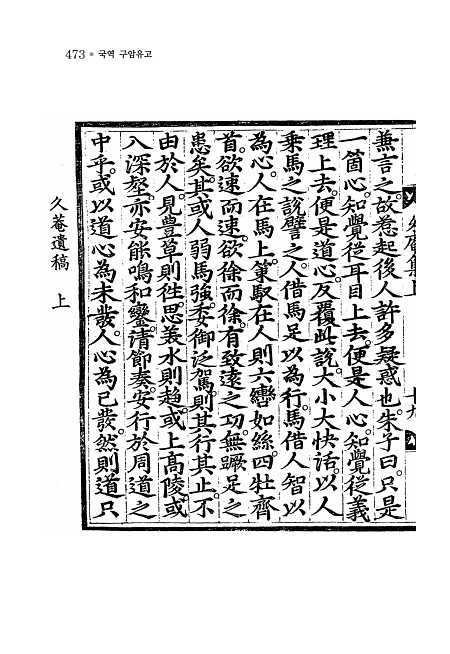 473 국역 구암유고
兼言之故惹起後人許多疑惑也朱子曰只是
一箇心知覺從耳目上去便是人心知覺從義
理上去便是道心反覆此說大小大快活以人
乘馬之說譬之人借馬足以為行馬借人智以
為心人在馬上策馭在人則六轡如絲四牡齊
首欲速而速欲徐而徐有致遠之功無蹶足之
患矣其或人弱馬強委御泛駕則其行其止不
由於人見豊草則徃思羙水則趨或上高陵或
入深壑亦安能鳴和鑾淸節奏安行於周道之
中乎或以道心為未發人心為已發然則道只
久菴遺稿 上